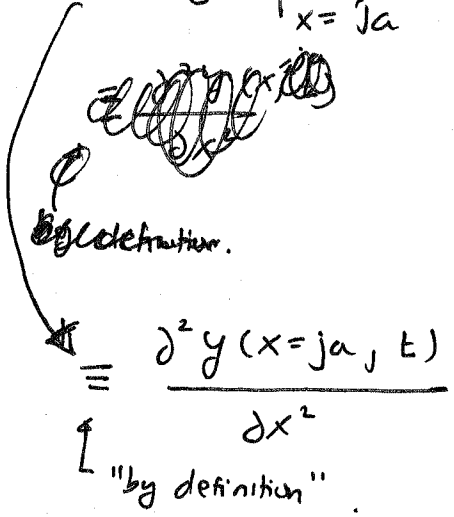 x = ja
by definition.
≡ ∂²y (x=ja, t)
∂x²
"by definition"